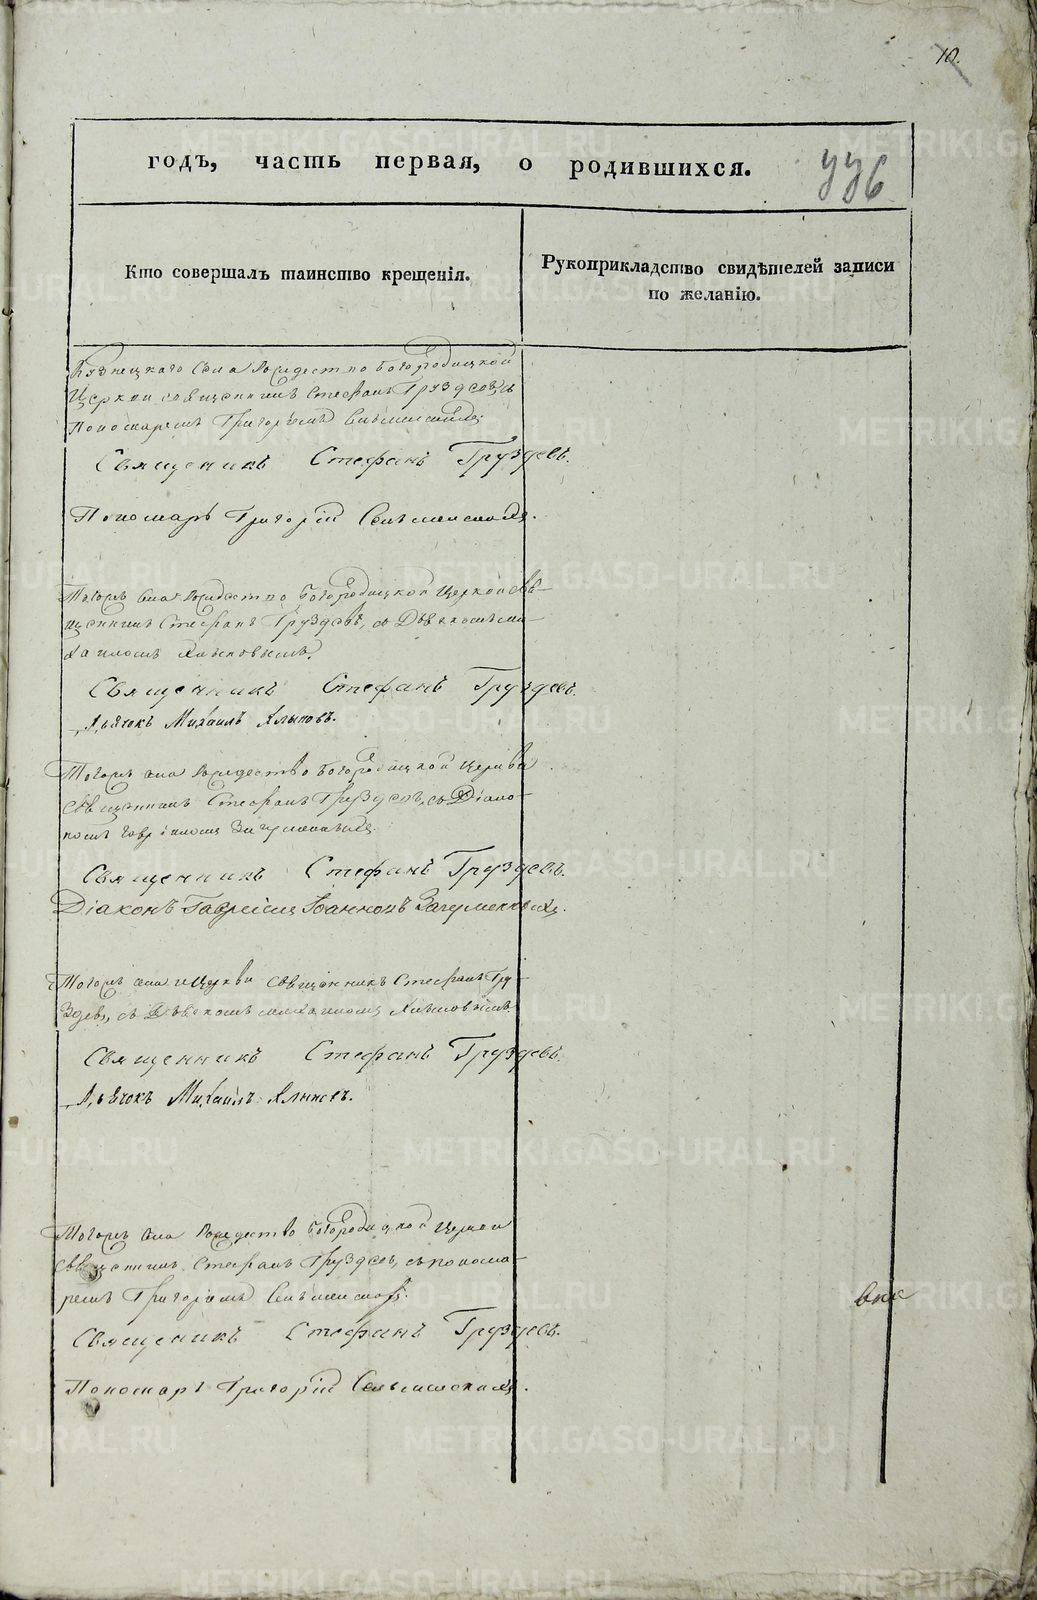 10.
годъ, часть первая, о родившихся.
336
Кто совершалъ таинство крещенія.
Рукоприкладство свидѣтелей записи
по желанію.
Села Рождество Богородицкой
Церкви священникъ Стефанъ Груздевъ съ
Пономаремъ Григоріемъ
Священикъ Стефанъ Груздевъ.
Пономаръ Григорій
Тогожъ села Рождество Богородицкой Церкви свя-
щенникъ Стефанъ Груздевъ, съ Дьячкомъ Ми-
хаиломъ Хлыновымъ.
Священникъ Стефанъ Груздевъ.
Дьячокъ Михаилъ Хлыновъ.
Тогожъ села Рождество Богородицкой Церкви
священникъ Стефанъ Груздевъ, съ Діако-
номъ Гавріиломъ
Священникъ Стефанъ Груздевъ.
Діаконъ Гавріилъ Іоанновъ
Тогожъ села и Церкви священникъ Стефанъ Гру-
здевъ, съ Дьячкомъ Михаиломъ Хлыновымъ.
Священникъ Стефанъ Груздевъ.
Дьячокъ Михаилъ Хлыновъ.
Тогожъ села Рождество Богородицкой Церкви
священникъ Стефанъ Груздевъ, съ понома-
ремъ Григоріемъ
Священикъ Стефанъ Груздевъ.
Пономаръ Григорій
METRIKI.GASO-URAL.RU